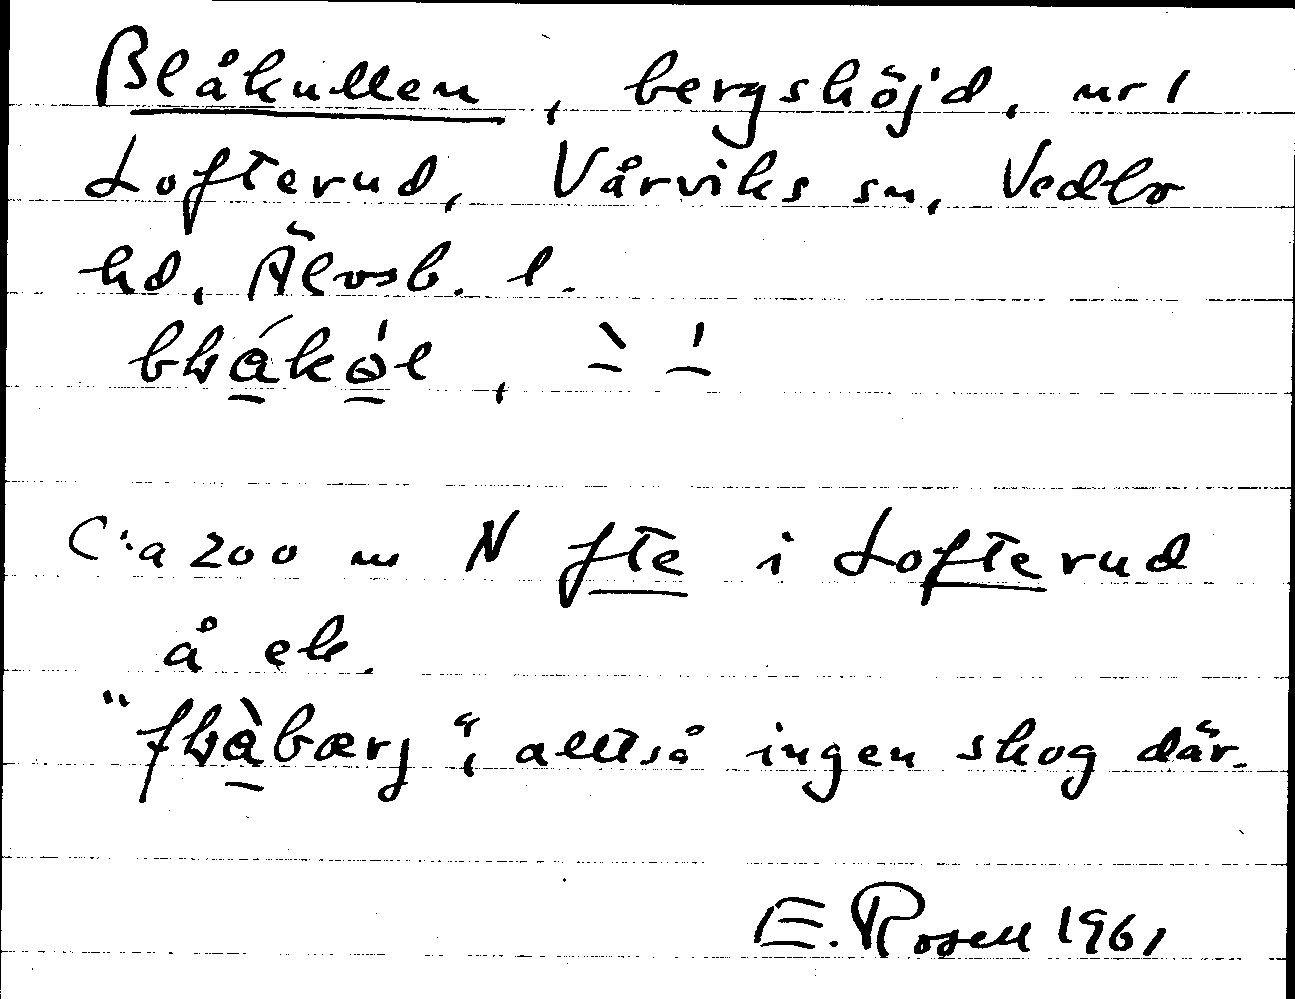 Blåkullen, bergshöjd, nr 1
Lofterud, Vårviks sn, Vedbo
hd, Älvsb. l.
C:a 200 m N fte i Lofterud
å ek.
alltså ingen skog där.
E. Rosell 1961